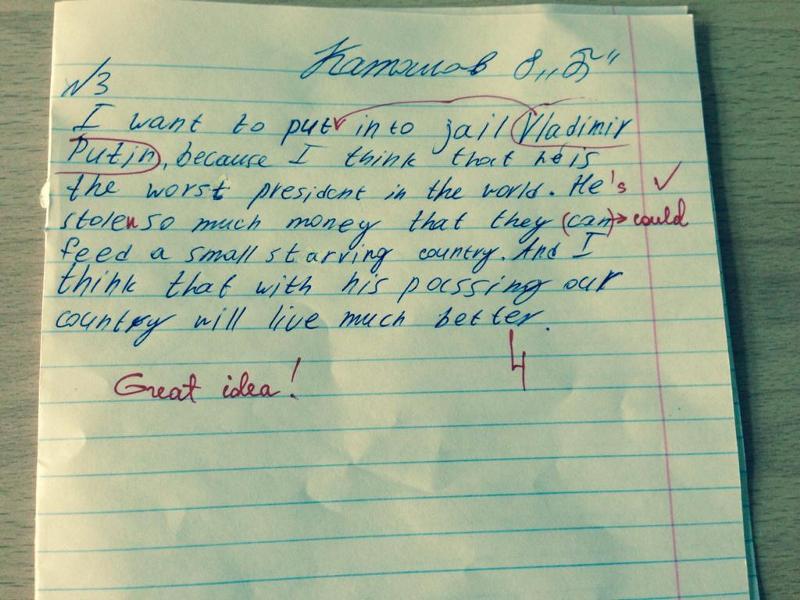 8 „Б“
N3
I want to put into jail Vladimir
Putin, because I think that he is
the worst president in the world. He's
stolen so much money that they (can)→could
feed a small starving country. And I
think that with his passing our
country will live much better.
Great idea! 4